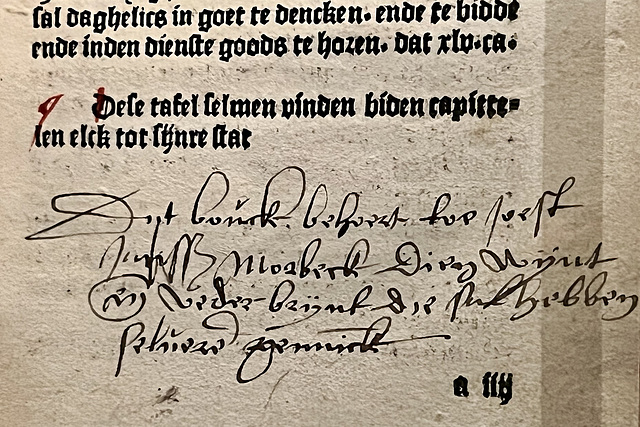 sal daghelics in goet te dencken. ende te bidde
ende inden dienste goods te horen. dat xlv. ca.
¶ Dese tafel selmen vinden biden capitte=
len elck tot sijnre stat
Dyt bouck behoert toe joest
Morbeck dien vvynt
en veder brijnt die sal hebben
pennick
a iiij